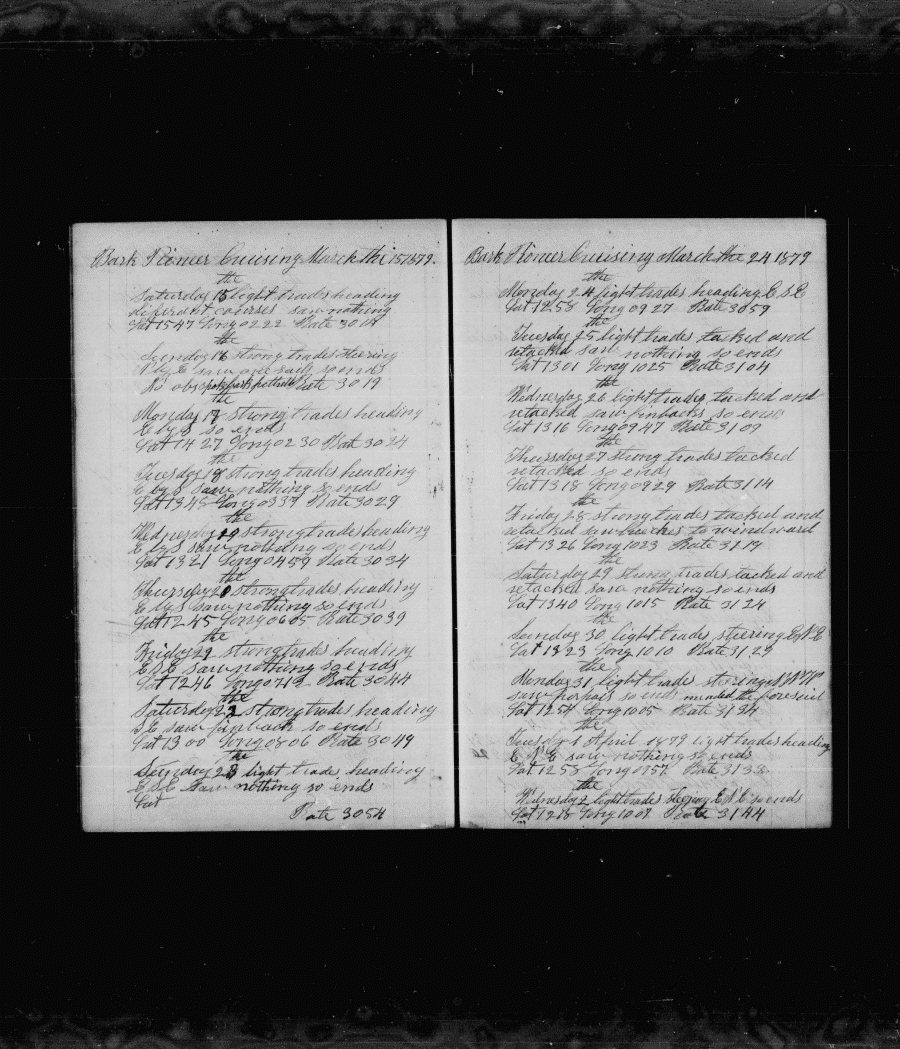 Bark Pioneer Cruising March the 15 1879.
the
Saturday 15 light trades heading
diferant courses saw nothing
Lat 15 47 Long 02 22 Rate 3014
the
Sunday 16 strong trades steering
E saw one sail so ends
No obs Rate 3019
the
Monday 17 strong trades heading
E by S so ends
Lat 14 27 Long 02 30 Rate 3024
the
Tuesday 18 strong trades heading
E by S saw nothing so ends
Lat 13 48 Long 03 39 Rate 3029
the
Wednesday 19 strong trades heading
E by S saw nothing so ends
Lat 13 21 Long 04 59 Rate 3034
the
Thursday 20 strong trades heading
E by S saw nothing so ends
Lat 12 45 Long 06 05 Rate 3039
the
Friday 21 strong trades heading
E S E saw nothing so ends
Lat 12 46 Long 07 12 Rate 3044
the
Saturday 22 strong trades heading
S E saw finback so ends
Lat 13 00 Long 08 06 Rate 3049
the
Sunday 23 light trades heading
E S E saw nothing so ends
Lat
Rate 3054
Bark Pioneer Cruising March the 24 1879
the
Monday 24 light trades heading E S E
Lat 12 58 Long 09 27 Rate 3059
the
Tuesday 25 light trades tacked and
retacked saw nothing so ends
Lat 13 01 Long 10 25 Rate 3104
the
Wednesday 26 light trades tacked and
retacked saw finbacks so ends
Lat 13 16 Long 09 47 Rate 3109
the
Thursday 27 strong trades tacked
retacked so ends
Lat 13 18 Long 09 29 Rate 3114
the
Friday 28 strong trades tacked and
retacked to windward
Lat 13 26 Long 10 23 Rate 3119
the
Saturday 29 strong trades tacked and
retacked saw nothing so ends
Lat 13 40 Long 10 15 Rate 3124
the
Sunday 30 light trades steering E N E
Lat 13 23 Long 10 10 Rate 3129
the
Monday 31 light trades steering
saw porpois so ends mended the foresail
Lat 12 54 Long 10 05 Rate 3134
the
Tuesday 1 April 1879 light trades heading
E saw nothing so ends
Lat 12 58 Long 09 57 Rate 3138
the
Wednesday 2 light trades steering E S E so ends
Lat 12 18 Long 10 07 Rate 3144